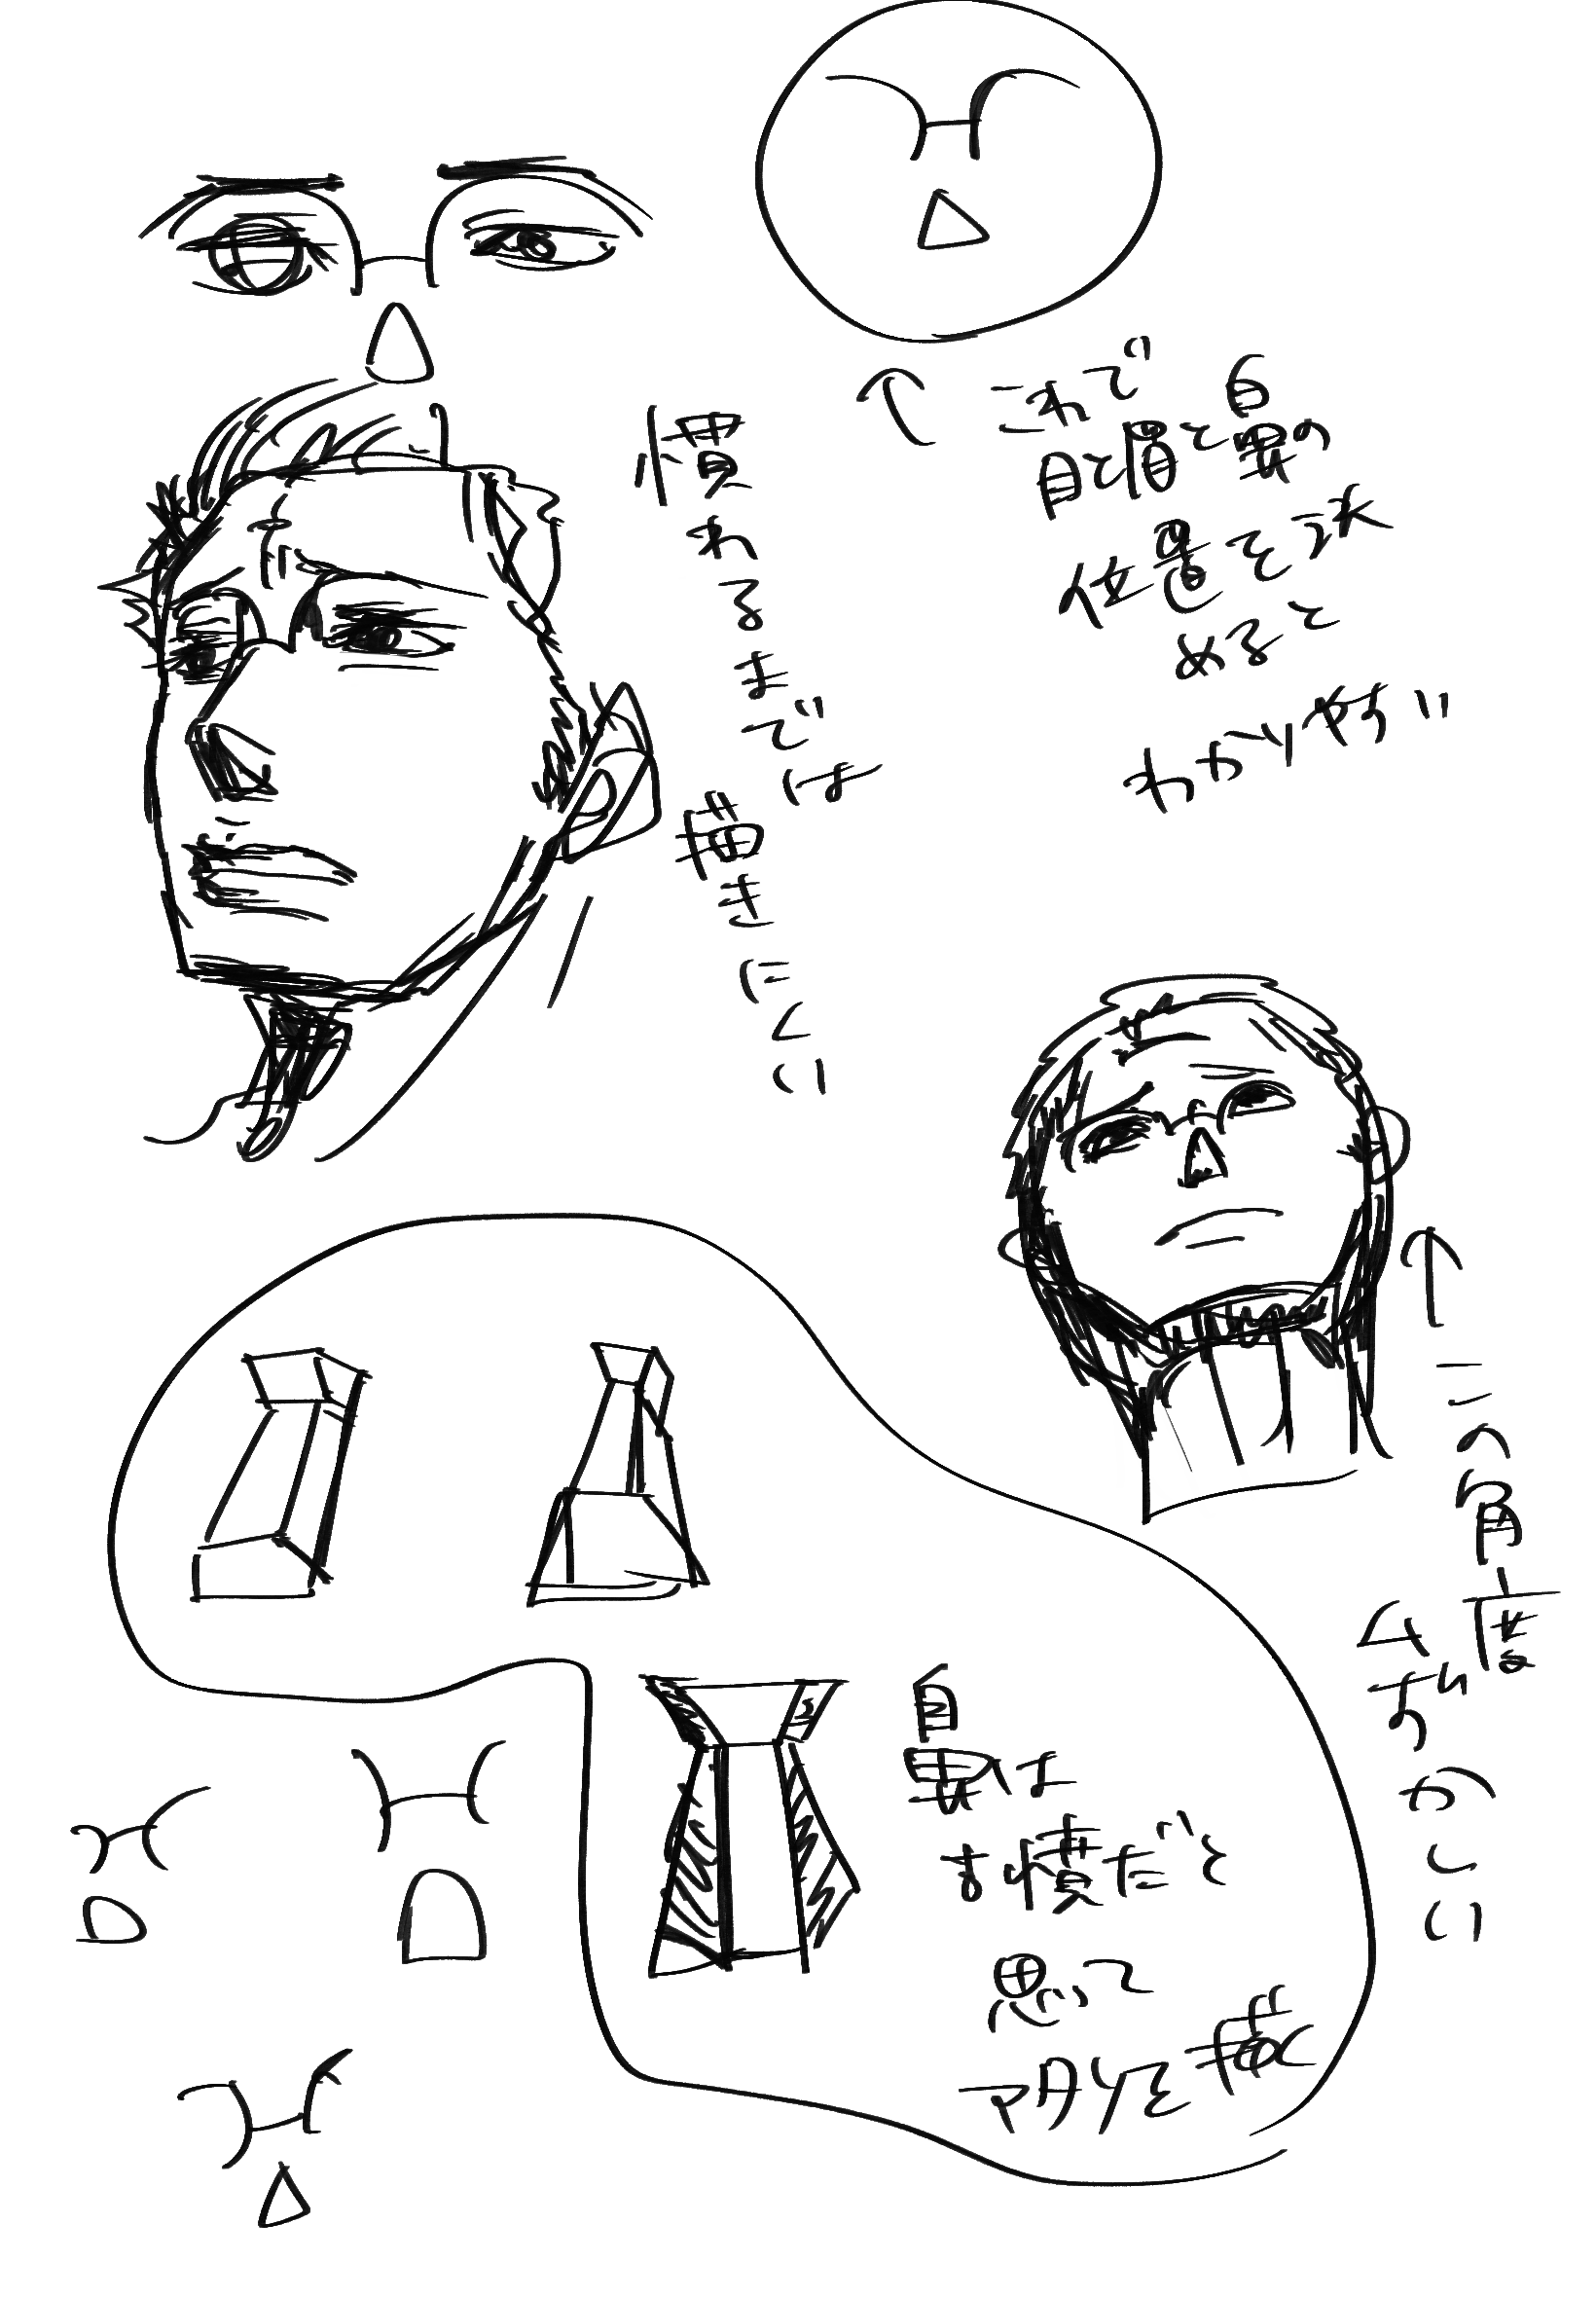 これで
目と眉と鼻の
位置を決
めると
わかりやすい
慣れるまでは
描きにくい
この角度
ムずかしい
鼻は
お墳だと
思って
アタリを描く